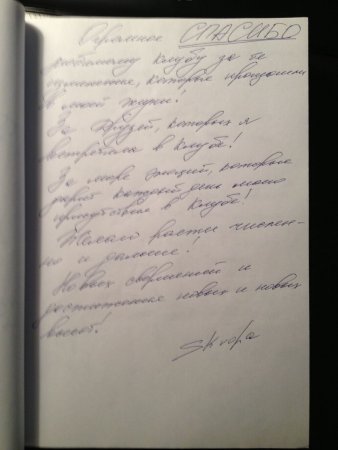 Огромное СПАСИБО
любимому клубу за те
изменения, которые произошли
в моей жизни!
За друзей, которых я
встретила в Клубе!
За море эмоций, которые
дарит каждый день моего
присутствия в Клубе!
Желаю расти числен-
но и дальше!
Новых свершений и
достижения новых и новых
высот!